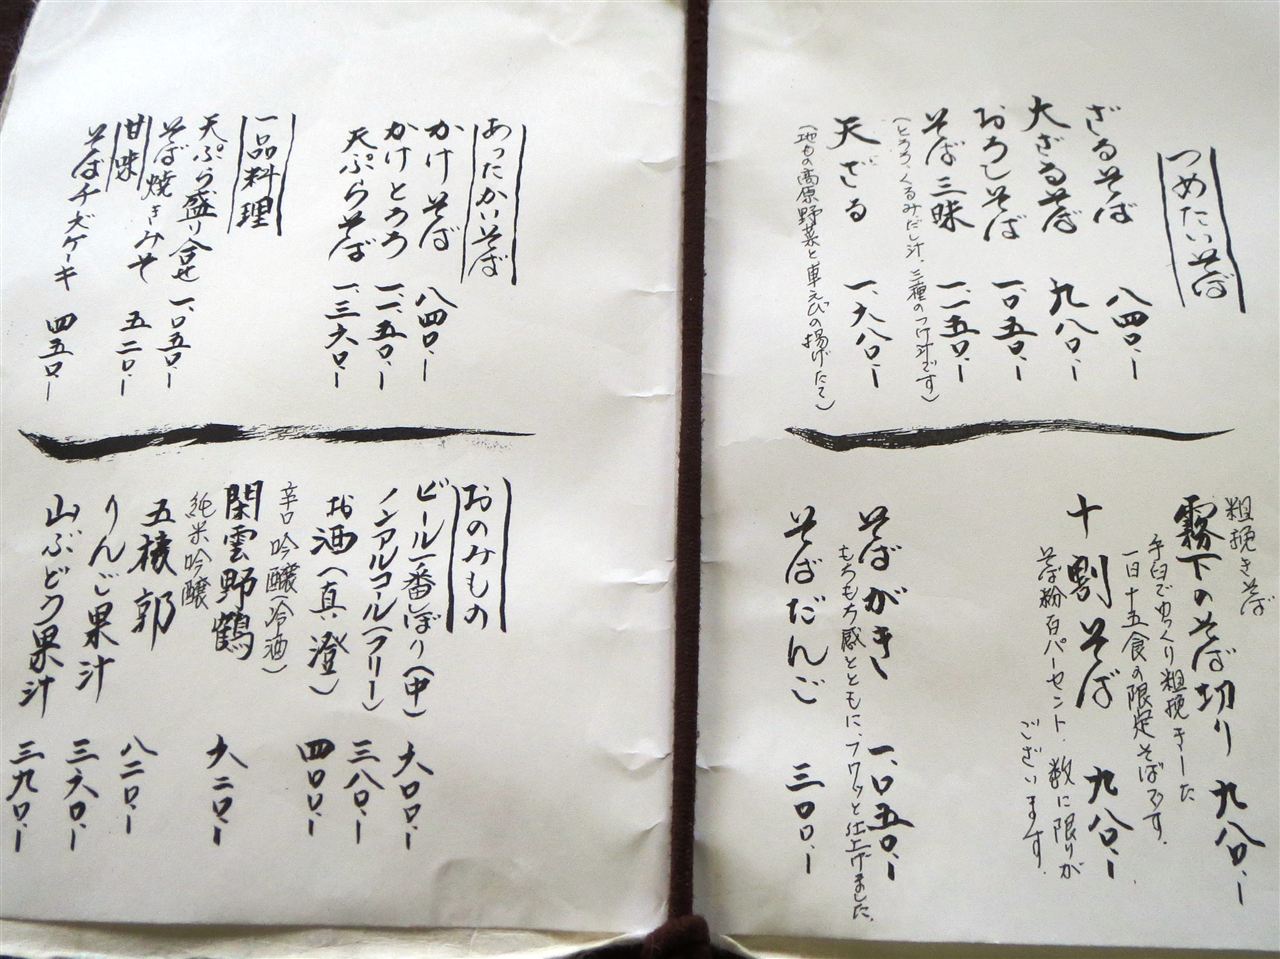 つめたいそば
ざるそば 八四〇、ー
大ざるそば 九八〇、ー
おろしそば 一、〇五〇、ー
そば三昧 一、一五〇、ー
(とろろ、くるみだし汁、三種のつけ汁です)
天ざる 一、六八〇、ー
(地もの高原野菜と車えびの揚げたて)
粗挽きそば
霧下のそば切り 九八〇、ー
手臼でゆっくり粗挽きした
一日十五食の限定そばです。
十割そば 九八〇、ー
そば粉百パーセント、数に限りが
ございます。
そばがき 一、〇五〇、ー
もちもち感とともに、フワッと仕上げました。
そばだんご 三〇〇、ー
あったかいそば
かけそば 八四〇、ー
かけとろろ 一、一五〇、ー
天ぷらそば 一、三六〇、ー
一品料理
天ぷら盛り合せ 一、〇五〇、ー
そば焼きみそ 五二〇、ー
甘味
そばチーズケーキ 四五〇、ー
おのみもの
ビール一番しぼり(中) 六〇〇、ー
ノンアルコール(フリー) 三八〇、ー
お酒(真澄) 四〇〇、ー
辛口 吟醸(冷酒)
閑雲野鶴 六二〇、ー
純米吟醸
五稜郭 八二〇、ー
りんご果汁 三六〇、ー
山ぶどう果汁 三九〇、ー